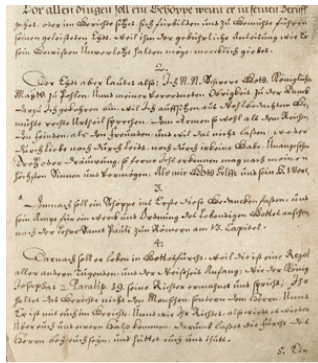 Vor allen dingen soll ein Schöppe wenn er in seinen Beruff
gehet, oder im Gerichte sitzet, sich fürbilden und zu Gemüthe führen
seinen geleisteten Eydt, weil ihm der gebührliche Anleitung wie Er
sein Gewissen Unverletzt halten möge, mercklich giebet.
2.
Der Eydt aber lautet also: Ich N. N. Schwere Gott, Königlicher
Maytt zu Pohlen, Unnd meiner verordneten Obrigkeit zu der Banck
darzu Ich gekohren bin, will Ich auff sehen aus wolbedachtem Ge-
müthe recht Urtheil sprechen, dem Armen so wohl als dem Reichen
dem feinden, als den freunden, und will das nicht lassen, weder
durch liebe noch durch leidt, noch durch keine Gabe, Unangesehen
so ferne Ich erkennen mag nach meinen
höchsten Sinnen und Vermögen, Als mir Gott helffe und sein H. Wort.
3.
Demnach soll ein Schöppe ins Erste diese Gedancken fassen, und
sein Ampt für ein werck und Ordnung des lebendigen Gottes ansehen
nach der Lehre Sanct Pauli zun Römern am 13. Capitel.
4.
Darnach soll er leben in Gottesfurcht, weil die ist eine Regel
aller andern Tugenden, und der Weisheit Anfang; Wie der König
Josaphat 2. Paralip. 19. seine Richter ermahnet und spricht: Ihr
haltet das Gerichte nicht den Menschen sondern dem Herrn, Unnd
Er ist mit euch im Gerichte, Unnd wie Ihr Richtet, also wirdt es wieder
Uber euch und euern Halß kommen, darumb lasset die furcht des
Herrn bey euch seyn, und hüttet euch und thutts.
5.